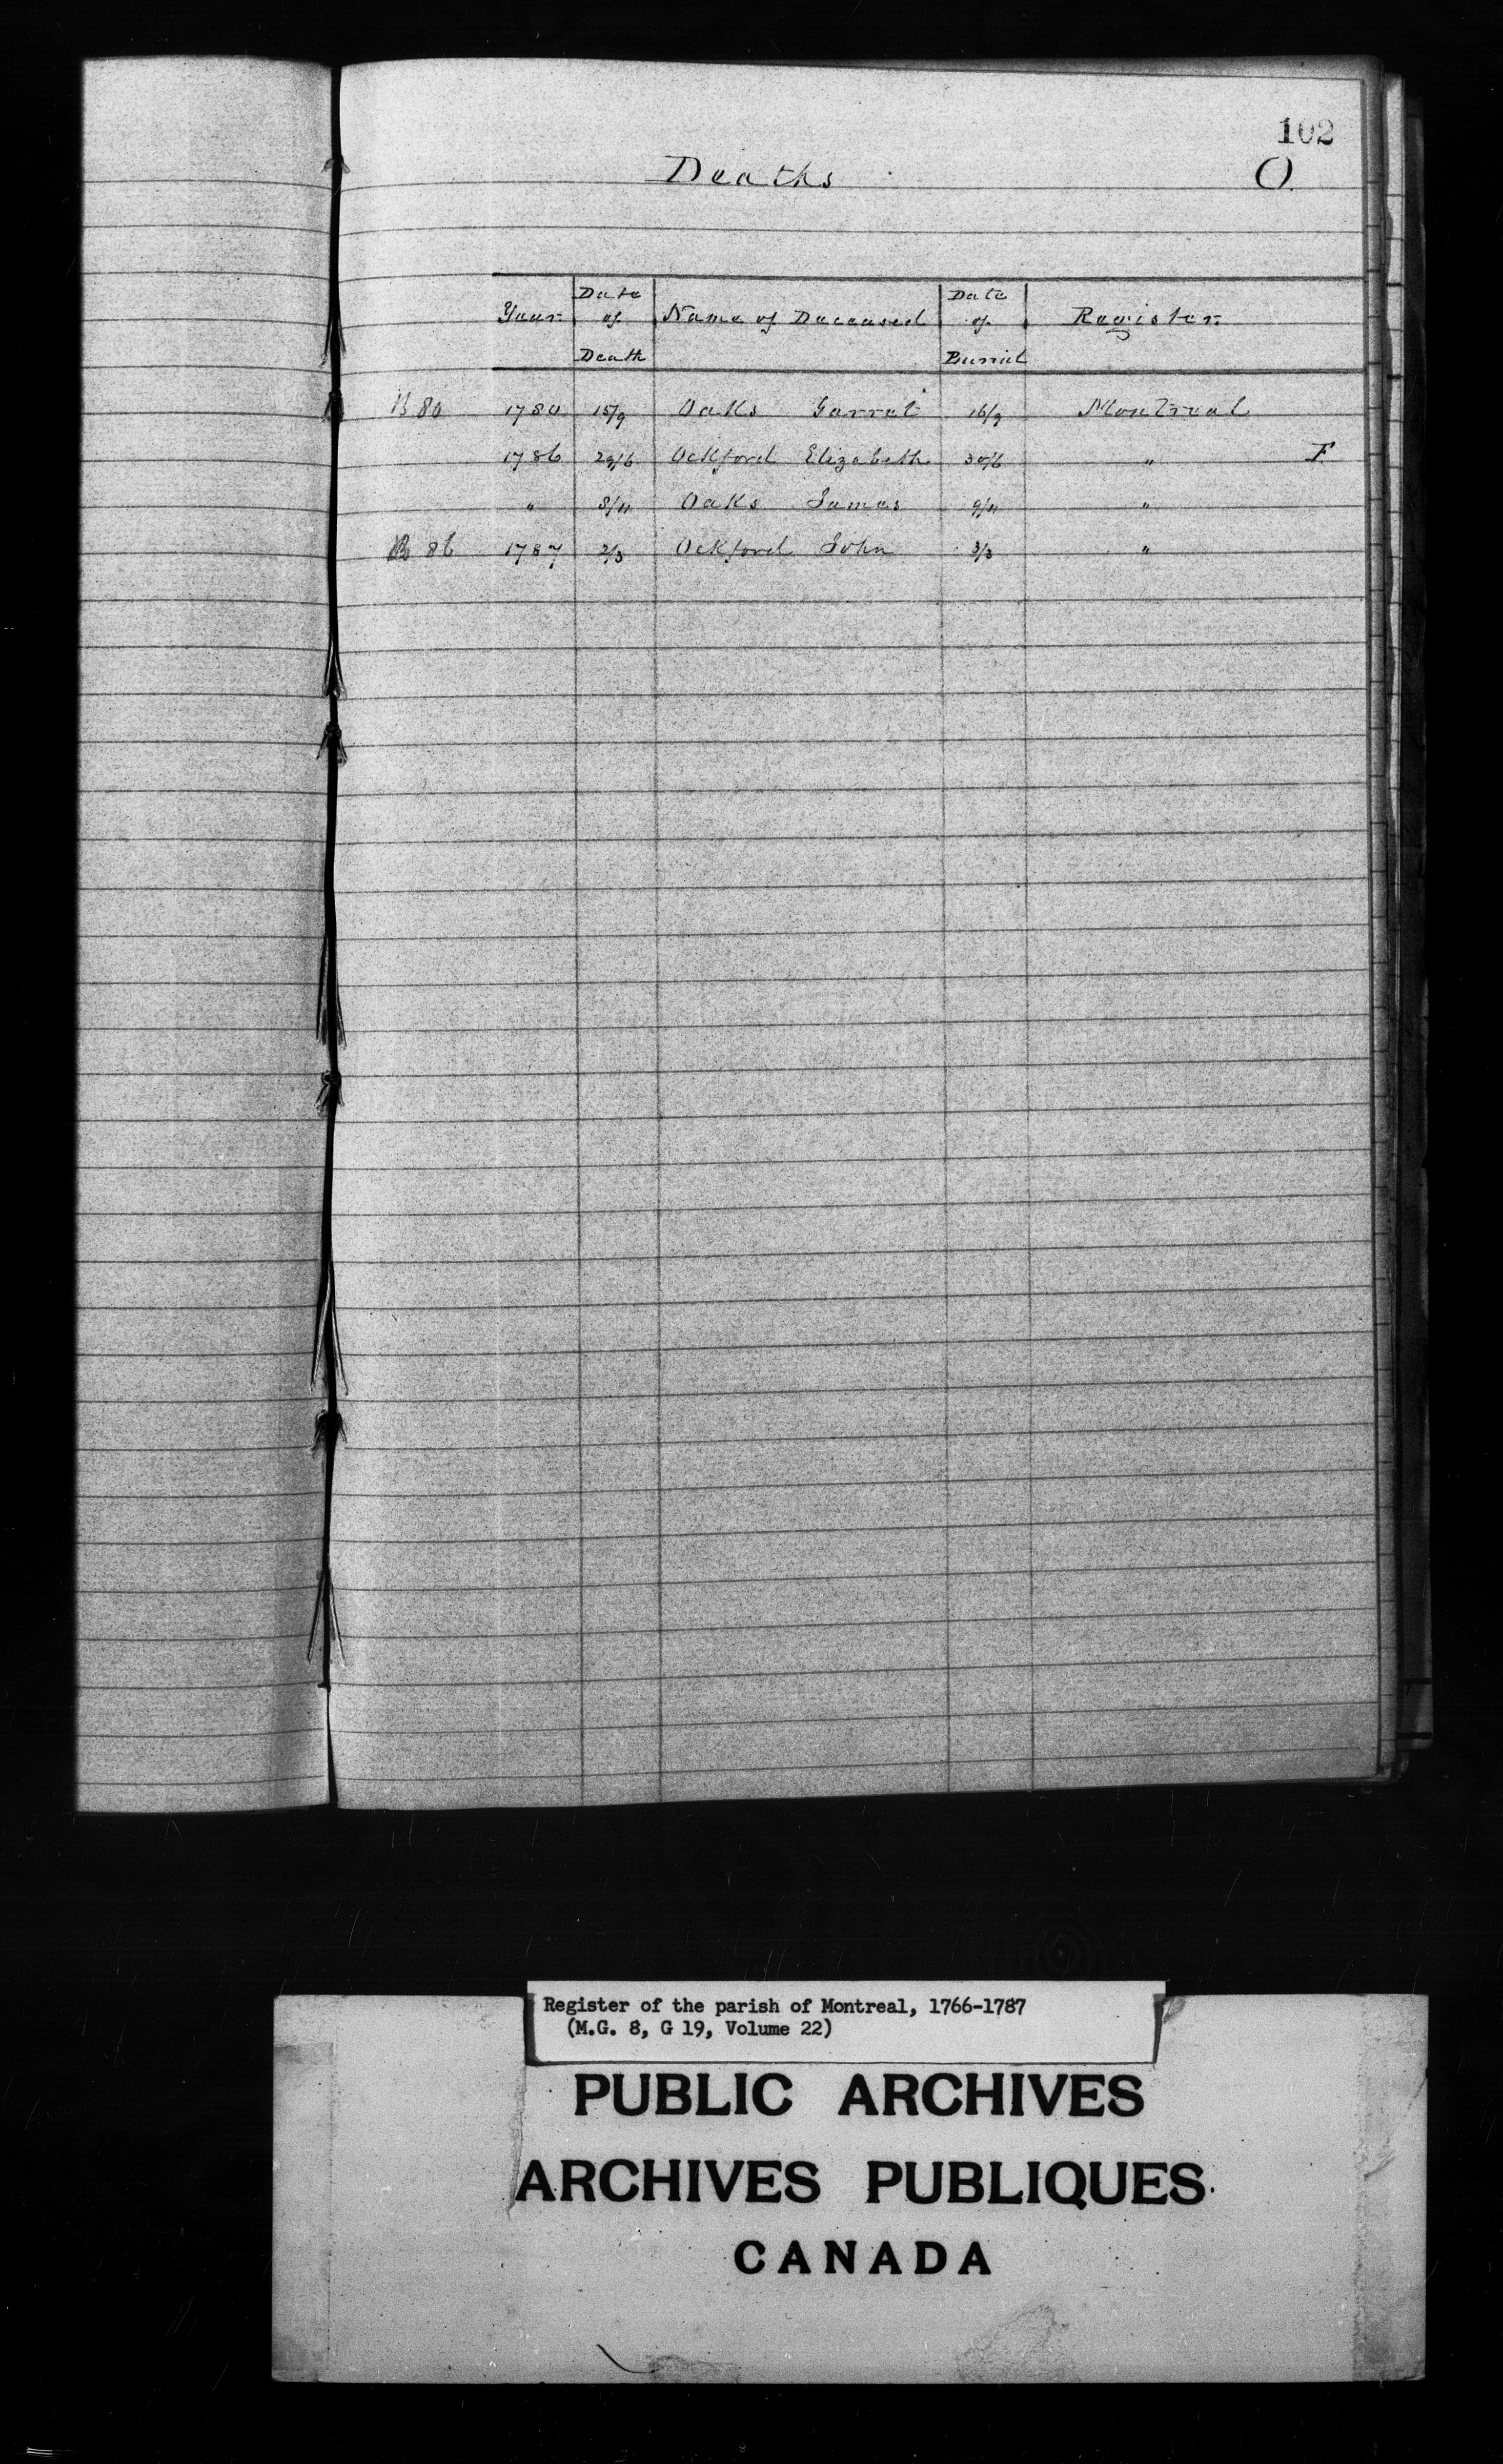 102
Deaths O.
Year Date of Death Name of Deceased Date of Burrial Register
B 80 1780 15/9 Oaks Garrat 16/9 Montreal
1786 29/6 Ockford Elizabeth 30/6 " F.
" 8/11 Oaks James 9/11 "
B 86 1787 2/3 Ockford John 3/3 "
Register of the parish of Montreal, 1766-1787
(M.G. 8, G 19, Volume 22)
PUBLIC ARCHIVES
ARCHIVES PUBLIQUES
CANADA